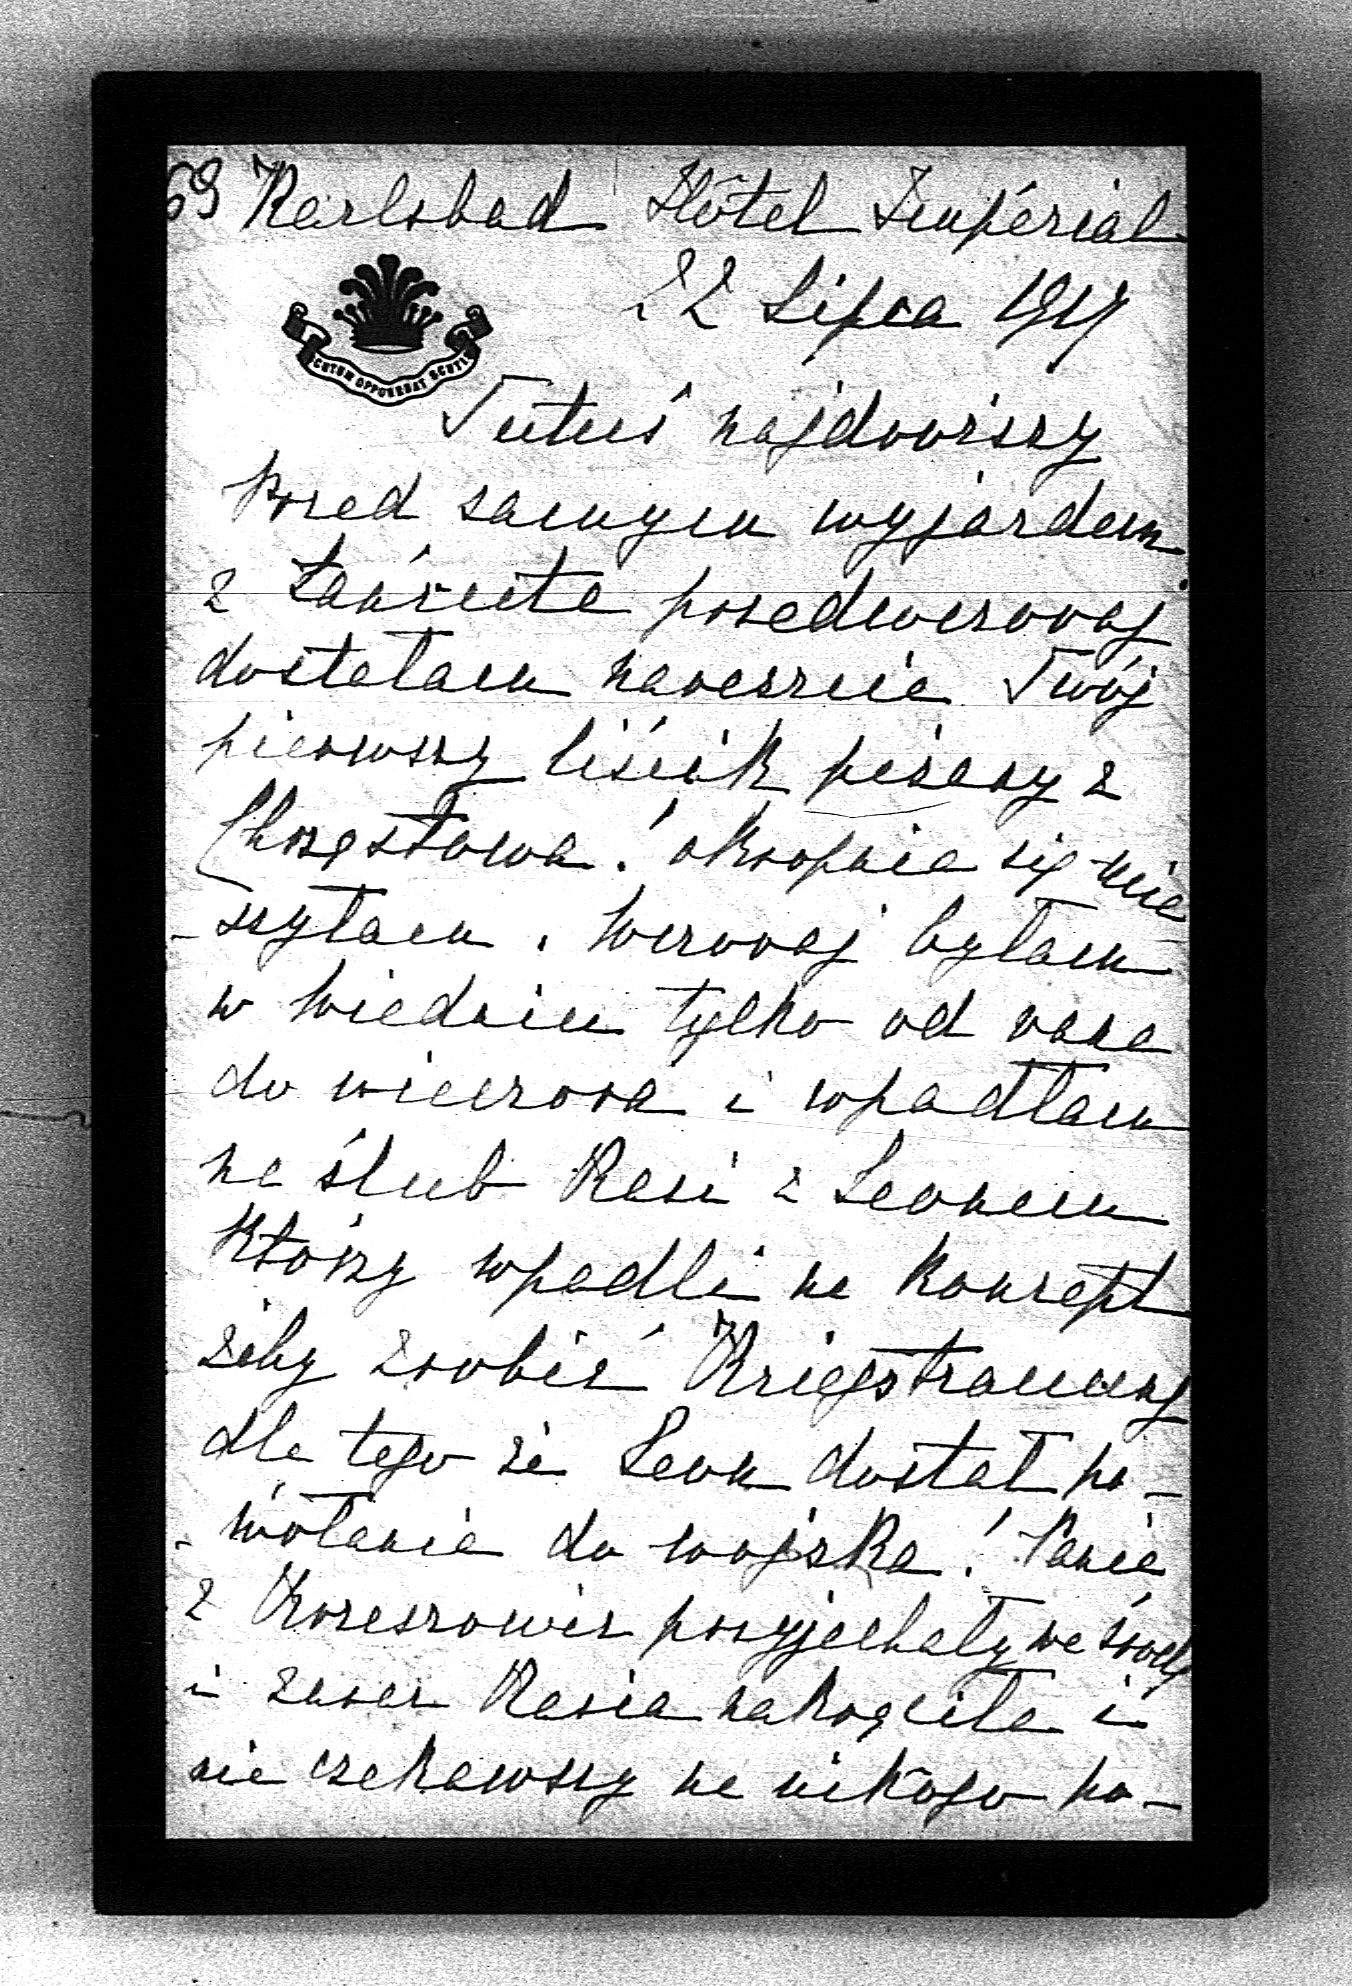 69 Karlsbad Hôtel Impérial
22 Lipca 1917
SCUTUM OPPONEBAT SCUTIS
Tutuś najdroższy
Przed samym wyjazdem
z Łańcuta przedwczoraj
dostałam nareszcie Twój
pierwszy liścik pisany z
Chrząstowa! okropnie się ucie
-szyłam. Wczoraj byłam
w Wiedniu tylko od rana
do wieczora i wpadłam
na ślub Kasi z Leonem
którzy wpadli na koncept
żeby zrobić Kriegstrauung
dla tego że Leon dostał po-
-wołanie do wojska! Panie
z Krzeszowic przyjechały we środę
i zaraz Kasia zakręciła i
nie czekawszy na nikogo po-